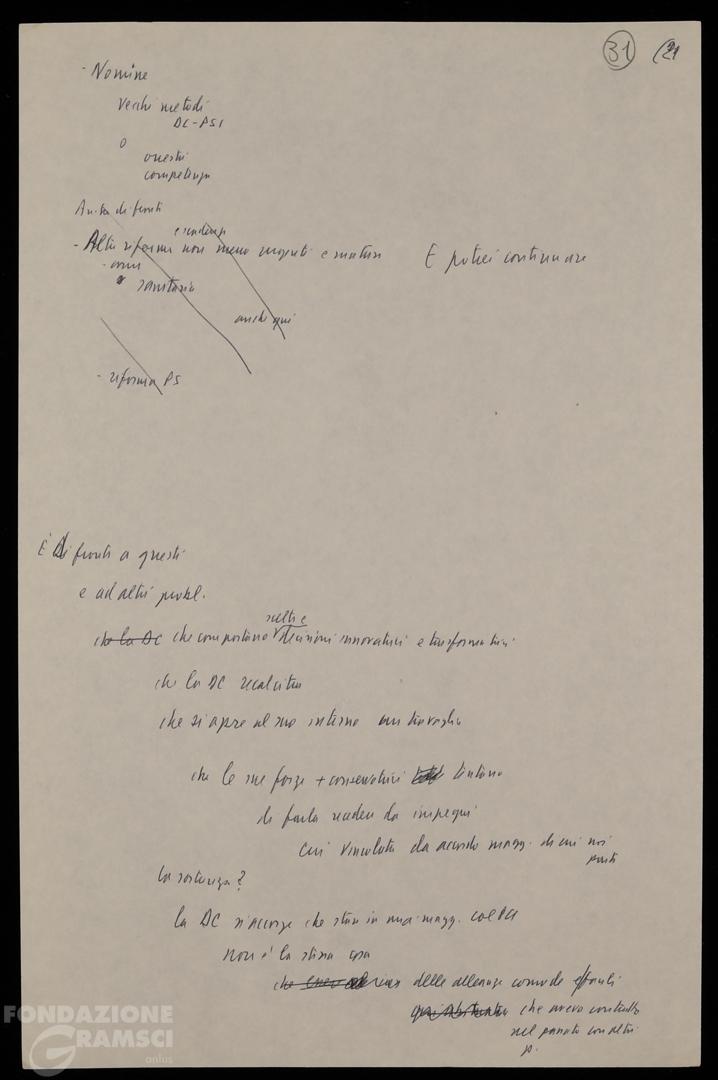 31 (21
- Nomine
vecchi metodi
DC-PSI
o
onestà
competenza
Anche di fronti
e scadenze
- Altre riforme non meno urgenti e mature E potrei continuare
sanitaria
anche qui
- riforma PS
È Di fronti a questi
e ad altri probl.
che la DC che comportano scelte e decisioni innovatrici e trasformatrici
che la DC recalcitra
che si apre al suo interno un travaglio
che le sue forze + conservatrici tentano
di farla recedere da impegni
cui vincolata da accordo magg. di cui noi
parte
La sostanza?
la DC s'accorge che stare in una magg. col PCI
non è la stessa cosa
che delle alleanze comode e facili
che aveva contratto
nel passato con altri
p.
FONDAZIONE
GRAMSCI
onlus